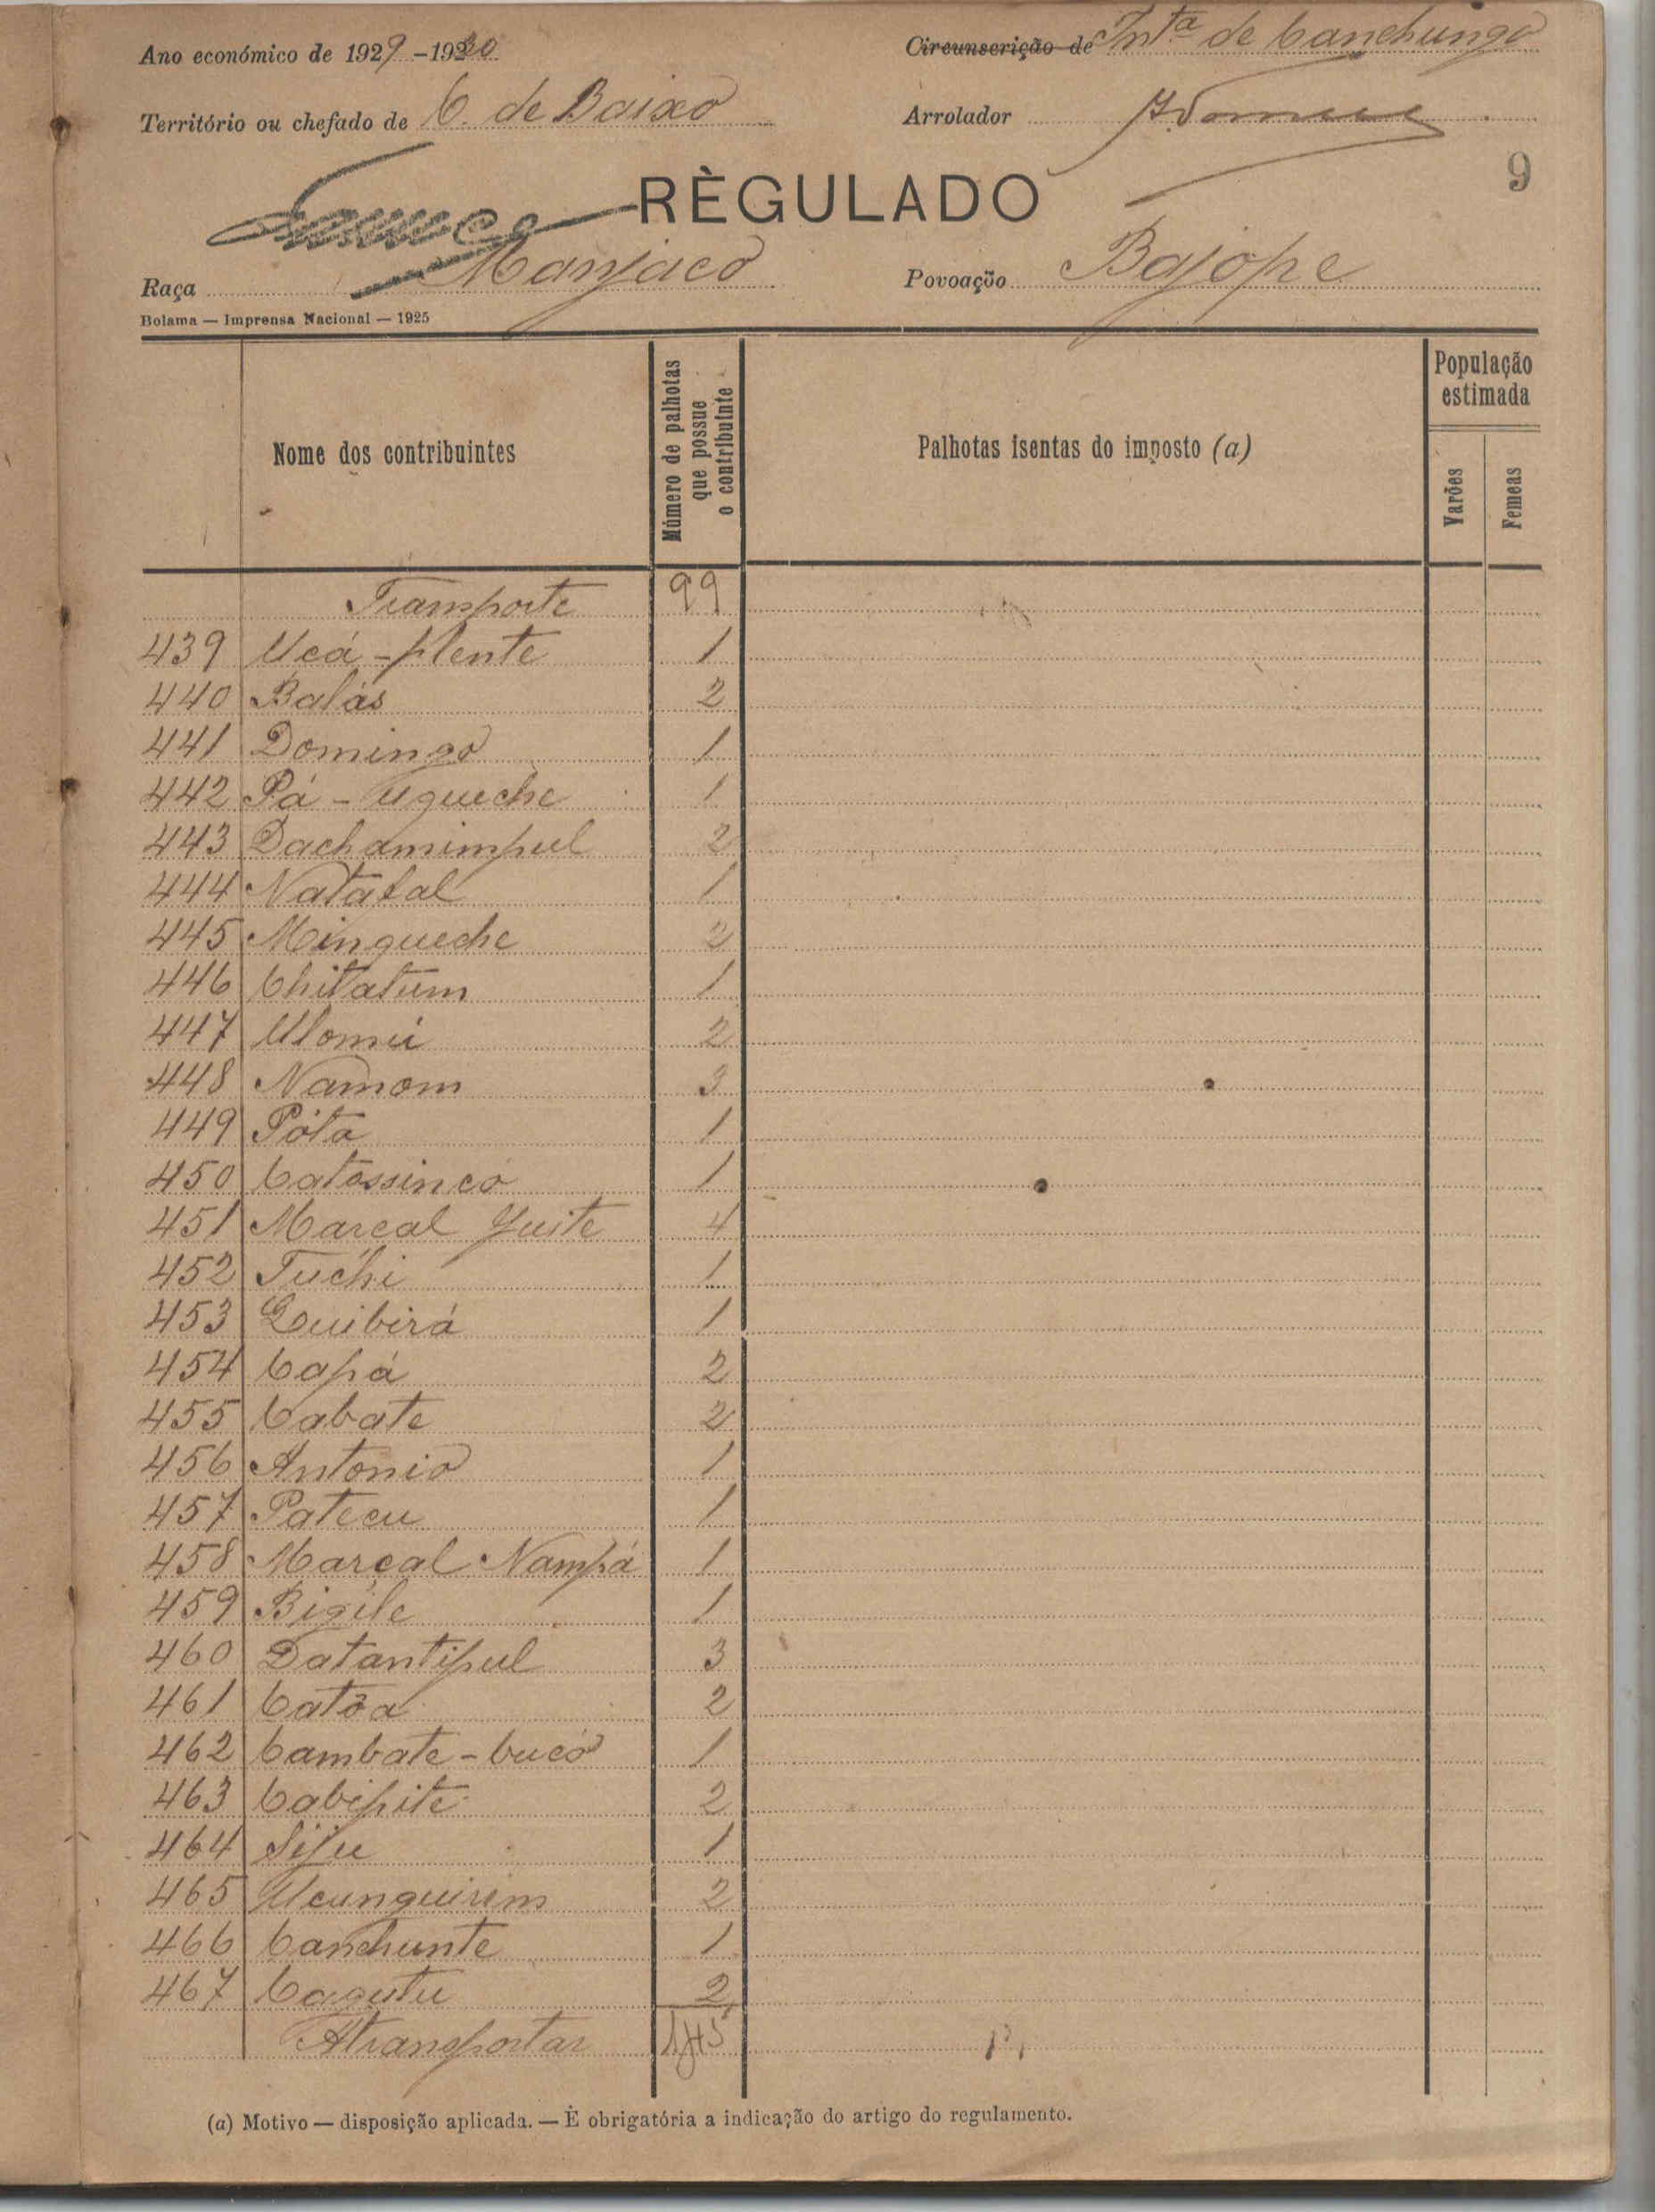 Ano económico de 1929-1930
Circunscrição de Intª de Canchungo
Território ou chefado de C. de Baixo
Arrolador
9
RÈGULADO
Raça Manjaco
Povoação Bajope
Bolama — Imprensa Nacional — 1925
Nome dos contribuintes
Número de palhotas que possue o contribuinte
Palhotas isentas do imposto (a)
População estimada
Varões
Femeas
Transporte 99
439 Ucá-plente 1
440 Balás 2
441 Domingo 1
442 Pá-ugueche 1
443 Dachamimpul 2
444 Natatal 1
445 Mingueche 2
446 Chitatum 1
447 Ulomú 2
448 Namom 3
449 Póta 1
450 Catossincó 1
451 Marcal Juite 4
452 Tuchi 1
453 Quibirá 1
454 Capá 2
455 Cabate 2
456 Antonio 1
457 Patecu 1
458 Marçal Nampá 1
459 Bigile 1
460 Datantipul 3
461 Catôa 2
462 Cambate-bucó 1
463 Cabipite 2
464 Siju 1
465 Ucunguirim 2
466 Canchunte 1
467 Cagutu 2
Atransportar 145
(a) Motivo — disposição aplicada. — È obrigatória a indicação do artigo do regulamento.